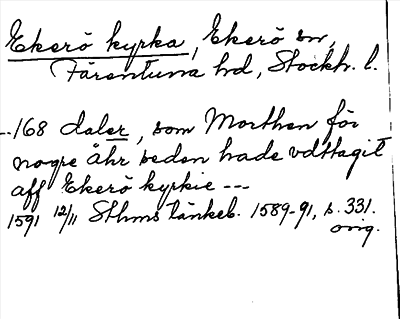 Ekerö kyrka, Ekerö sn,
Färentuna hd, Stockh. l.
--168 daler, som Morthen för
nogre åhr sedan hade vdttagit
aff Ekerö kyrkie ---
1591 12/11 Sthms tänkeb. 1589-91, s. 331.
orig.